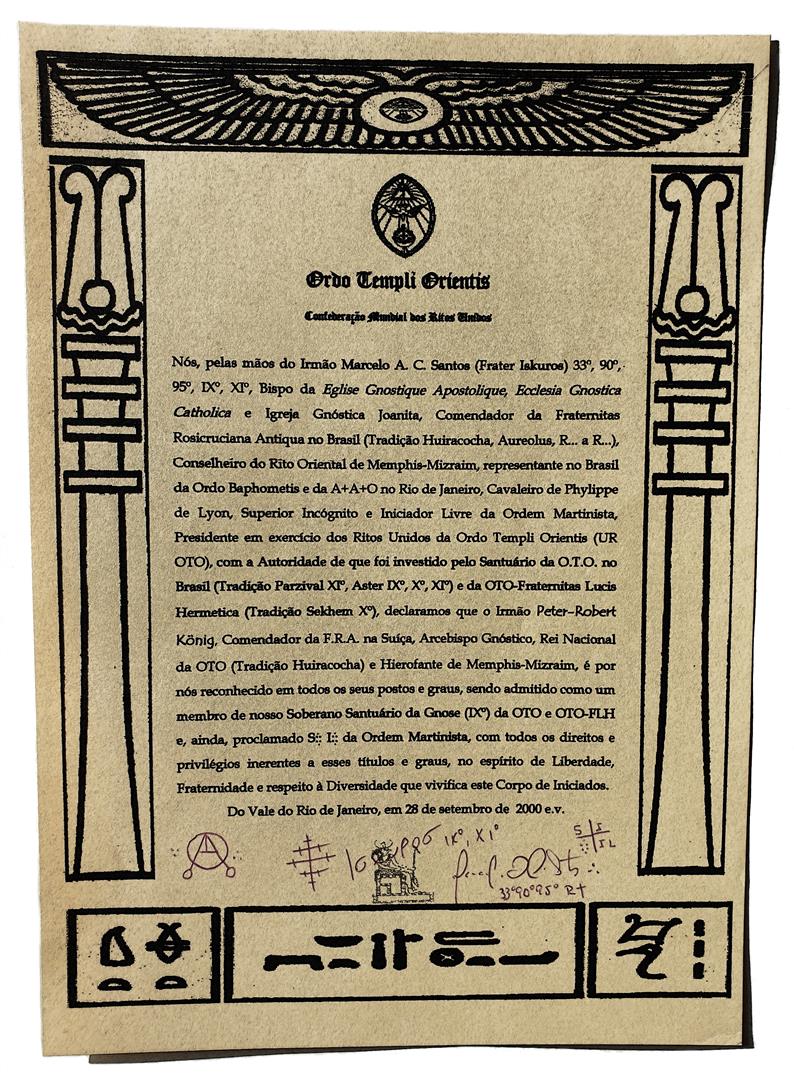 Ordo Templi Orientis
Confederação Mundial dos Ritos Unidos
Nós, pelas mãos do Irmão Marcelo A. C. Santos (Frater Iskuros) 33º, 90º,
95º, IXº, XIº, Bispo da Eglise Gnostique Apostolique, Ecclesia Gnostica
Catholica e Igreja Gnóstica Joanita, Comendador da Fraternitas
Rosicruciana Antiqua no Brasil (Tradição Huiracocha, Aureolus, R... a R...),
Conselheiro do Rito Oriental de Memphis-Mizraim, representante no Brasil
da Ordo Baphometis e da A+A+O no Rio de Janeiro, Cavaleiro de Phylippe
de Lyon, Superior Incógnito e Iniciador Livre da Ordem Martinista,
Presidente em exercício dos Ritos Unidos da Ordo Templi Orientis (UR
OTO), com a Autoridade de que foi investido pelo Santuário da O.T.O. no
Brasil (Tradição Parzival XIº, Aster IXº, Xº, XIº) e da OTO-Fraternitas Lucis
Hermetica (Tradição Sekhem Xº), declaramos que o Irmão Peter-Robert
König, Comendador da F.R.A. na Suíça, Arcebispo Gnóstico, Rei Nacional
da OTO (Tradição Huiracocha) e Hierofante de Memphis-Mizraim, é por
nós reconhecido em todos os seus postos e graus, sendo admitido como um
membro de nosso Soberano Santuário da Gnose (IXº) da OTO e OTO-FLH
e, ainda, proclamado S:: I:: da Ordem Martinista, com todos os direitos e
privilégios inerentes a esses títulos e graus, no espírito de Liberdade,
Fraternidade e respeito à Diversidade que vivifica este Corpo de Iniciados.
Do Vale do Rio de Janeiro, em 28 de setembro de 2000 e.v.
IXº, XIº
33º90º95º R+